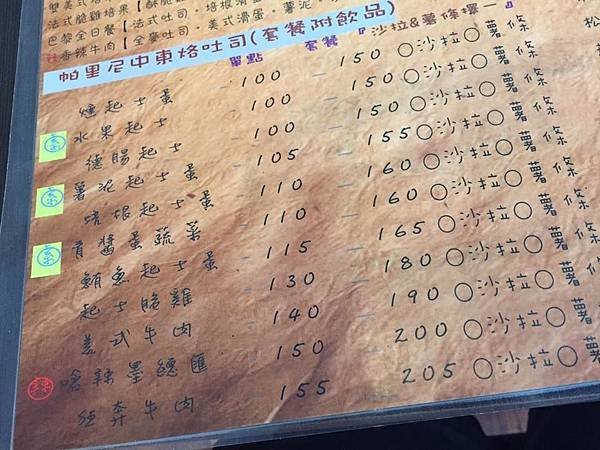 法式脆雞培果【酥脆
巴黎全日餐【法式吐司，培根滑
香辣牛肉【全麥吐司，美式滑蛋，薯泥，
帕里尼中東烙吐司(套餐附飲品)
單點 套餐『沙拉&薯條擇一』
燻起士蛋 - 100 - 150 ○沙拉○薯條
素 水果起士 - 100 - 150 ○沙拉○薯條
德腸起士 - 100 - 150 ○沙拉○薯條
素 薯泥起士蛋 - 105 - 155 ○沙拉○薯條
培根起士蛋 - 110 - 160 ○沙拉○薯條
素 青醬蛋蔬菜 - 110 - 160 ○沙拉○薯條
鮪魚起士蛋 - 115 - 165 ○沙拉○薯條
起士脆雞 - 130 - 180 ○沙拉○薯條
美式牛肉 - 140 - 190 ○沙拉○薯條
辣 哈辣墨總匯 - 150 - 200 ○沙拉○薯條
狂奔牛肉 - 155 - 205 ○沙拉○薯